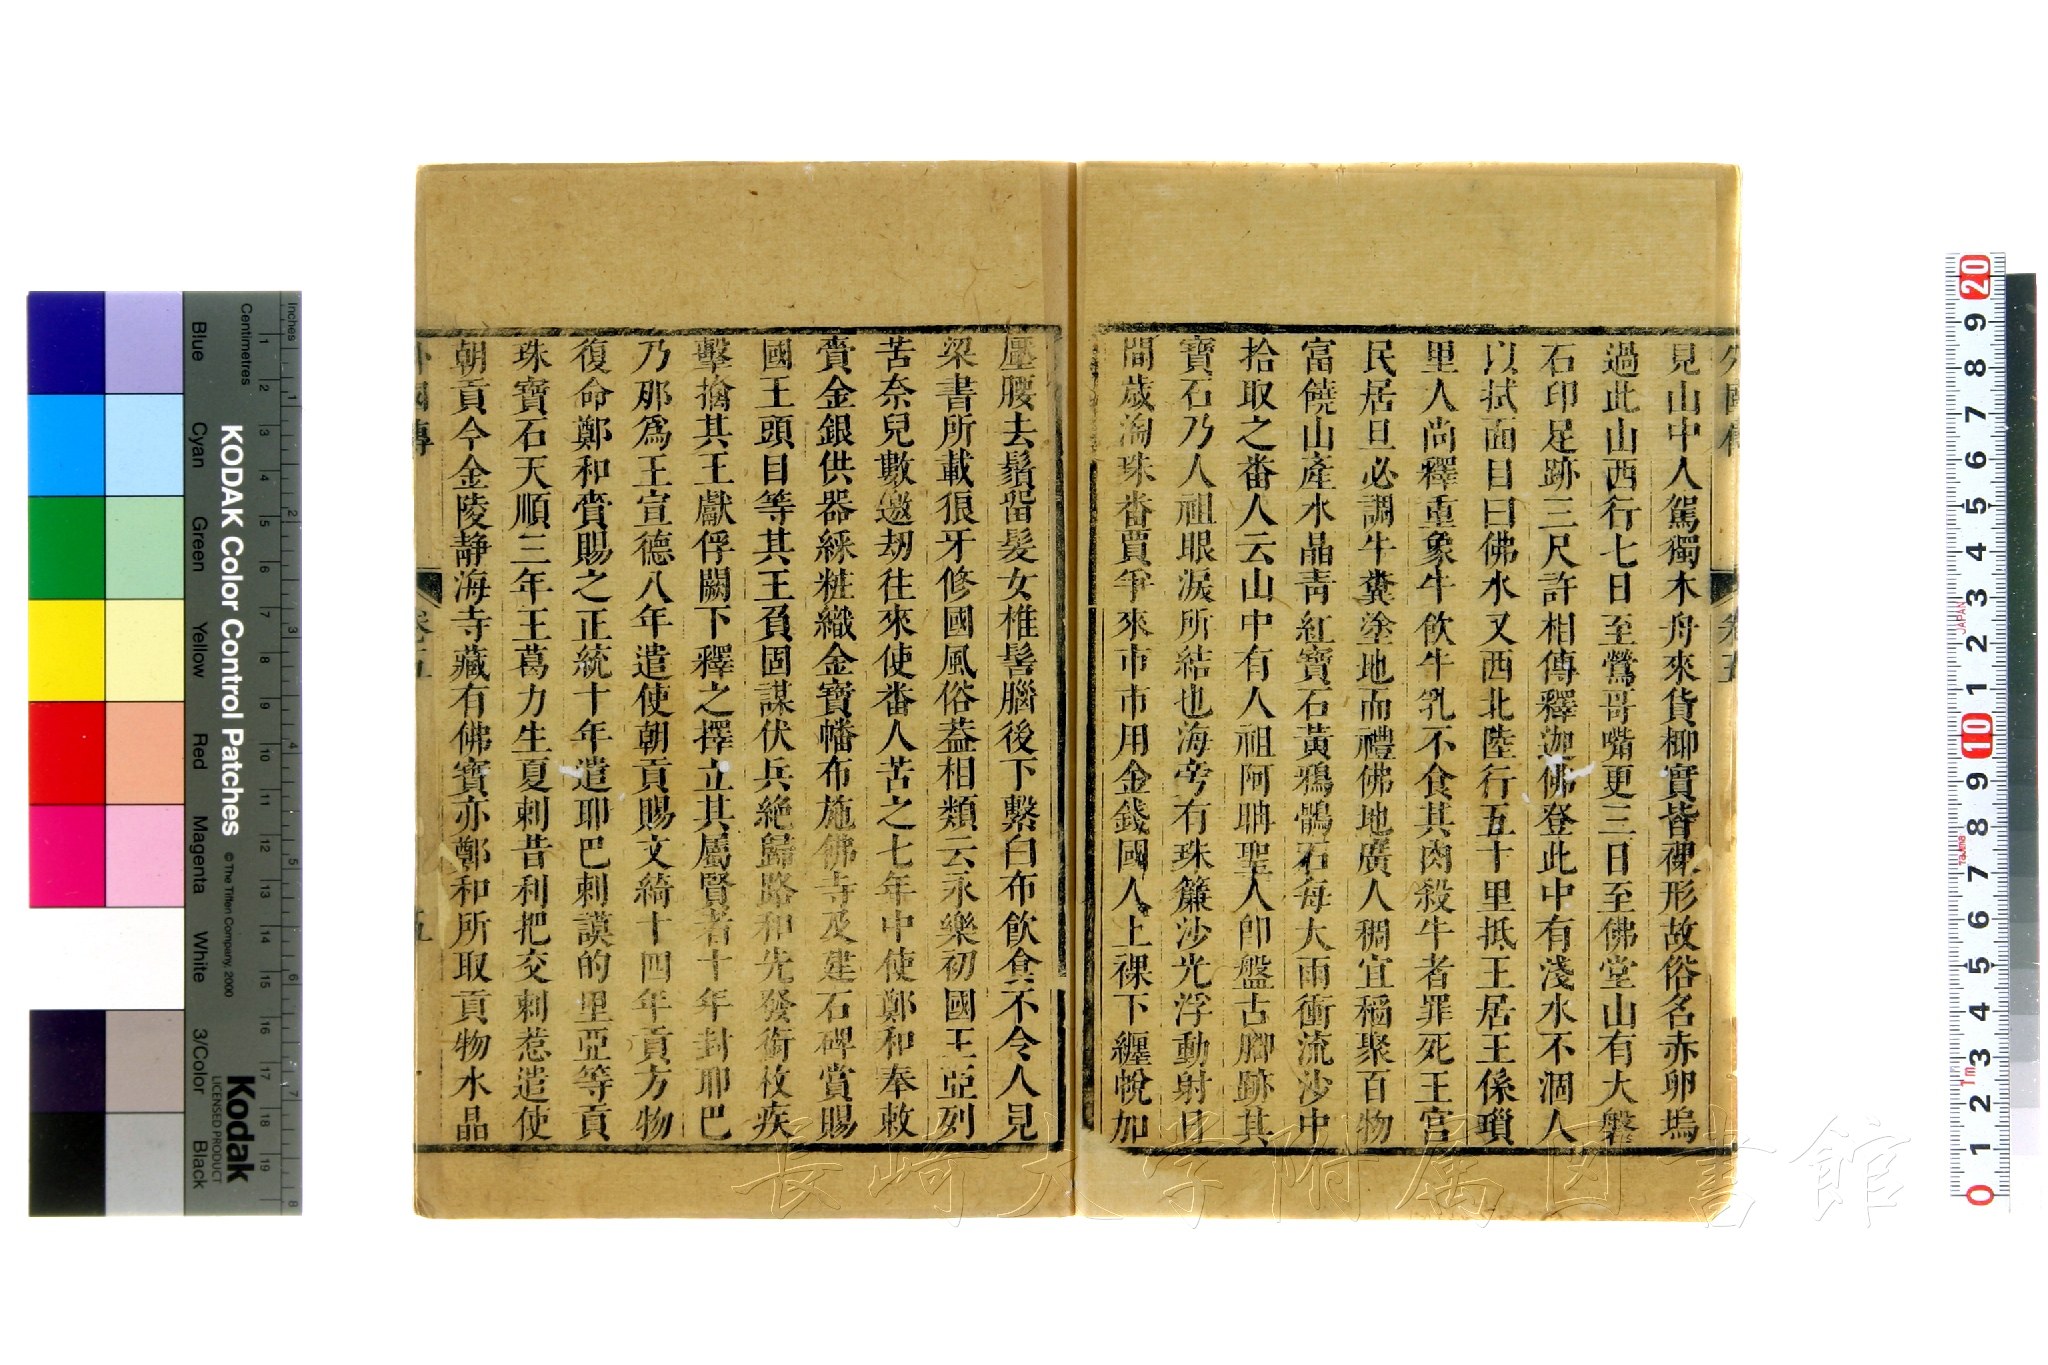 外國傳 卷五
見山中人駕獨木舟來貨椰實皆裸形故俗名赤卵塢
過此山西行七日至鶯哥嘴更三日至佛堂山有大磐
石印足跡三尺許相傳釋迦佛登此中有淺水不涸人
以拭面目曰佛水又西北陸行五十里抵王居王係瑣
里人尚釋重象牛飲牛乳不食其肉殺牛者罪死王宮
民居旦必調牛糞塗地而禮佛地廣人稠宜稻聚百物
富饒山產水晶靑紅寶石黃鴉鶻石每大雨衝流沙中
拾取之番人云山中有人祖阿聃聖人卽盤古腳跡其
寶石乃人祖眼淚所結也海旁有珠簾沙光浮動射日
間歲淘珠番賈爭來市市用金錢國人上裸下纏帨加
壓腰去鬚留髮女椎髻腦後下繫白布飲食不令人見
梁書所載狼牙修國風俗葢相類云永樂初國王亞列
苦奈兒數邀劫往來使番人苦之七年中使鄭和奉敕
賫金銀供器綵粧織金寶幡布施佛寺及建石碑賞賜
國王頭目等其王負固謀伏兵絕歸路和先發銜枚疾
擊擒其王獻俘闕下釋之擇立其屬賢者十年封耶巴
乃那爲王宣德八年遣使朝貢賜文綺十四年貢方物
復命鄭和賫賜之正統十年遣耶巴剌謨的里亞等貢
珠寶石天順三年王葛力生夏剌昔利把交剌惹遣使
朝貢今金陵靜海寺藏有佛寶亦鄭和所取貢物水晶
外國傳 卷五 五
KODAK Color Control Patches
© The Tiffen Company, 2000
Kodak
LICENSED PRODUCT
Inches
Centimetres
Blue
Cyan
Green
Yellow
Red
Magenta
White
3/Color
Black
長崎大学附属図書館